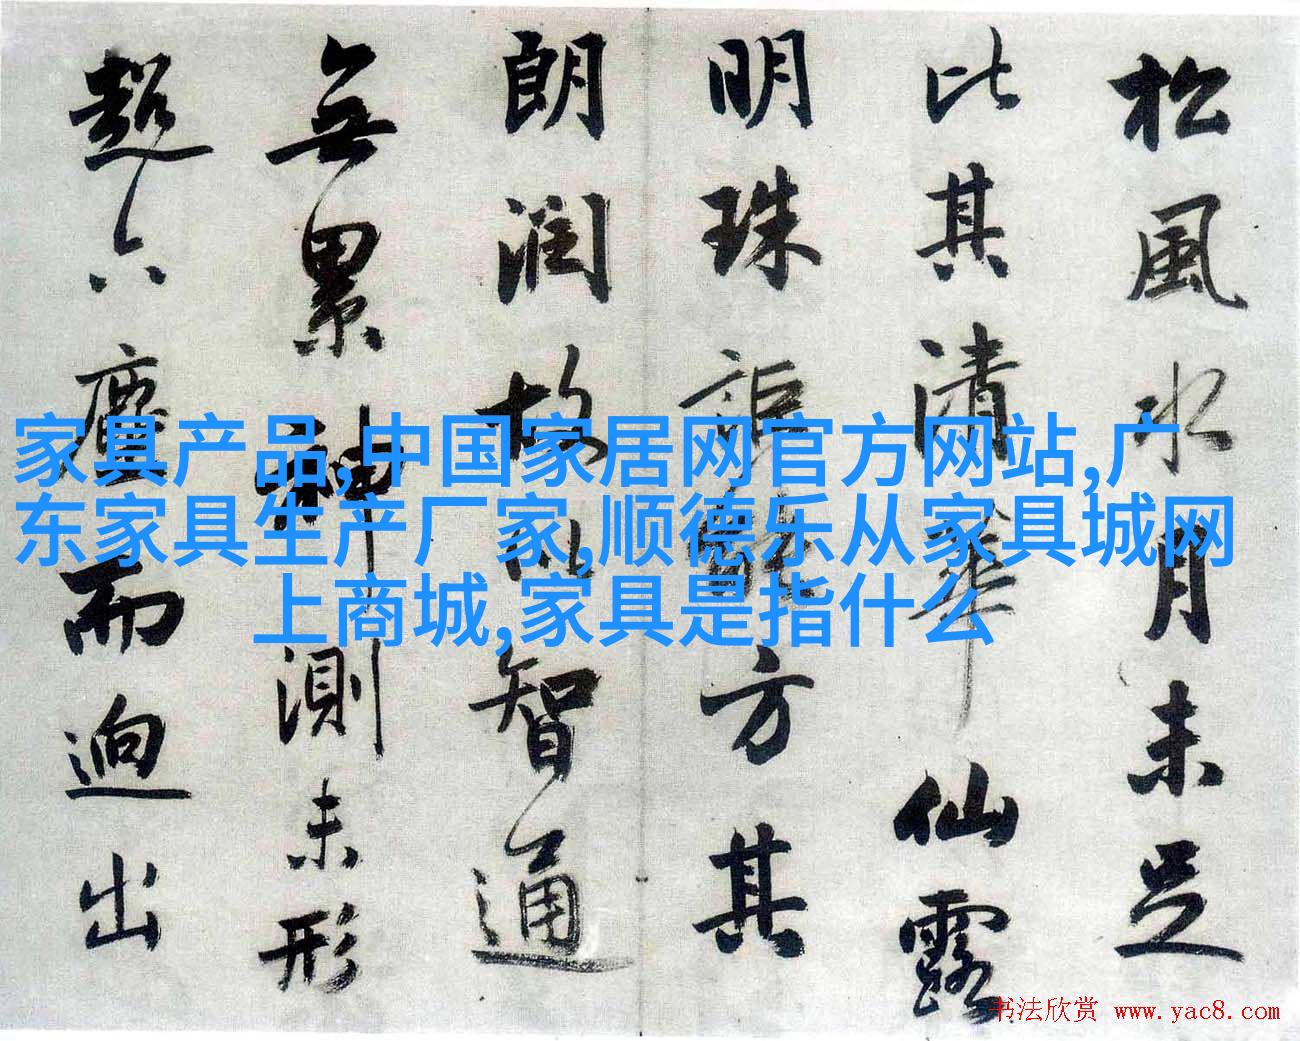 松風水月未足
比其清華仙露
明珠詎能方其
朗潤故以智通
無累神測未形
超六塵而迥出
家具产品,中国家居网官方网站,广
东家具生产厂家,顺德乐从家具城网
上商城,家具是指什么
书法欣赏 www.yac8.com